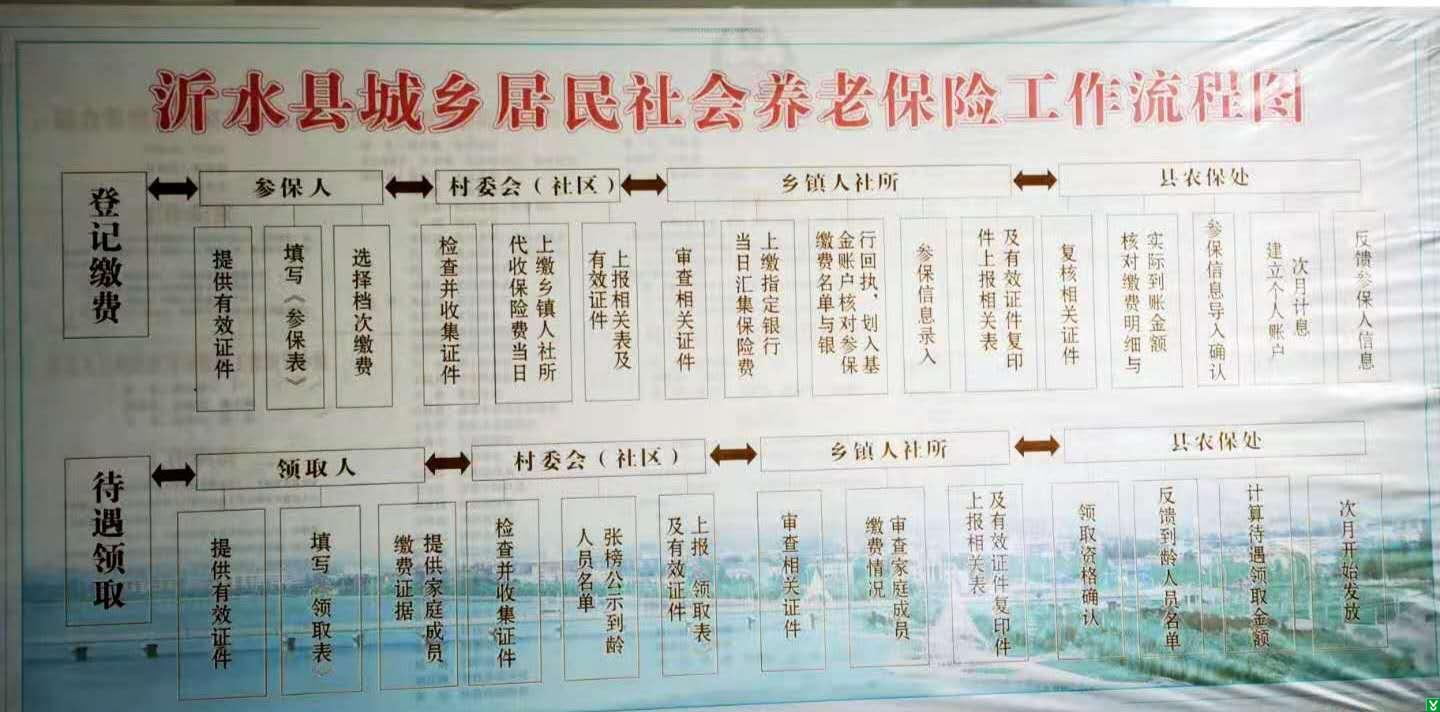 沂水县城乡居民社会养老保险工作流程图
登记缴费
参保人
提供有效证件
填写《参保表》
选择档次缴费
村委会（社区）
检查并收集证件
代收保险费当日
上缴乡镇人社所
上报相关表及
有效证件
乡镇人社所
审查相关证件
当日汇集保险费
上缴指定银行
行回执、划入基
金账户核对参保
缴费名单与银
参保信息录入
及有效证件复印
件上报相关表
县农保处
复核相关证件
核对缴费明细与
实际到账金额
参保信息导入确认
建立个人账户
次月计息
反馈参保人信息
待遇领取
领取人
提供有效证件
填写《领取表》
提供家庭成员
缴费证据
村委会（社区）
检查并收集证件
张榜公示到龄
人员名单
上报《领取表》
及有效证件
乡镇人社所
审查相关证件
审查家庭成员
缴费情况
上报相关表
及有效证件复印件
县农保处
领取资格确认
反馈到龄人员名单
计算待遇领取金额
次月开始发放